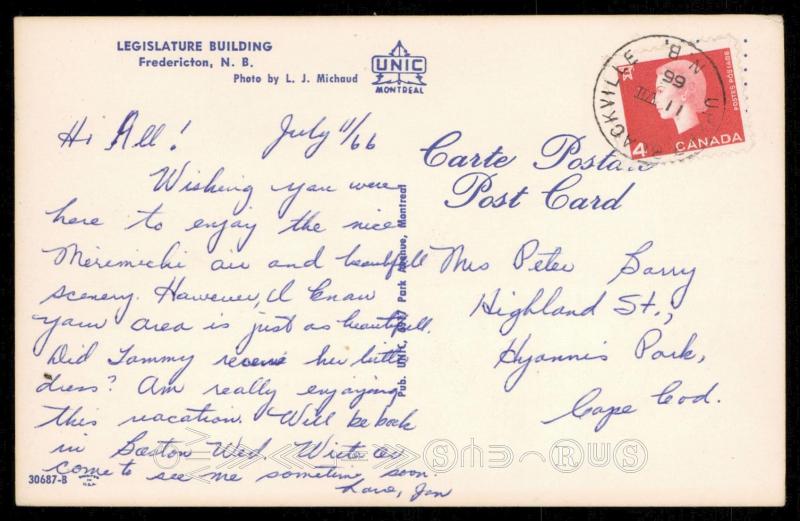 LEGISLATURE BUILDING
Fredericton, N. B.
Photo by L. J. Michaud
UNIC
MONTREAL
Hi All!
July 11/66
Wishing you were
here to enjoy the nice
Merimichi air and beautifull
scenery. However, I know
your area is just as beautifull.
Did Tammy receive her little
dress? Am really enjoying
this vacation. Will be back
in Boston Wed. Write or
come to see me sometime soon.
Love, Jan
30687-B
Pub. UNIC, Park Avenue, Montreal
Carte Postale
Post Card
Mrs Peter Barry
Highland St.,
Hyannis Park,
Cape Cod.
SACKVILLE
N.B.
11 VII
66
4
CANADA
POSTES POSTAGE